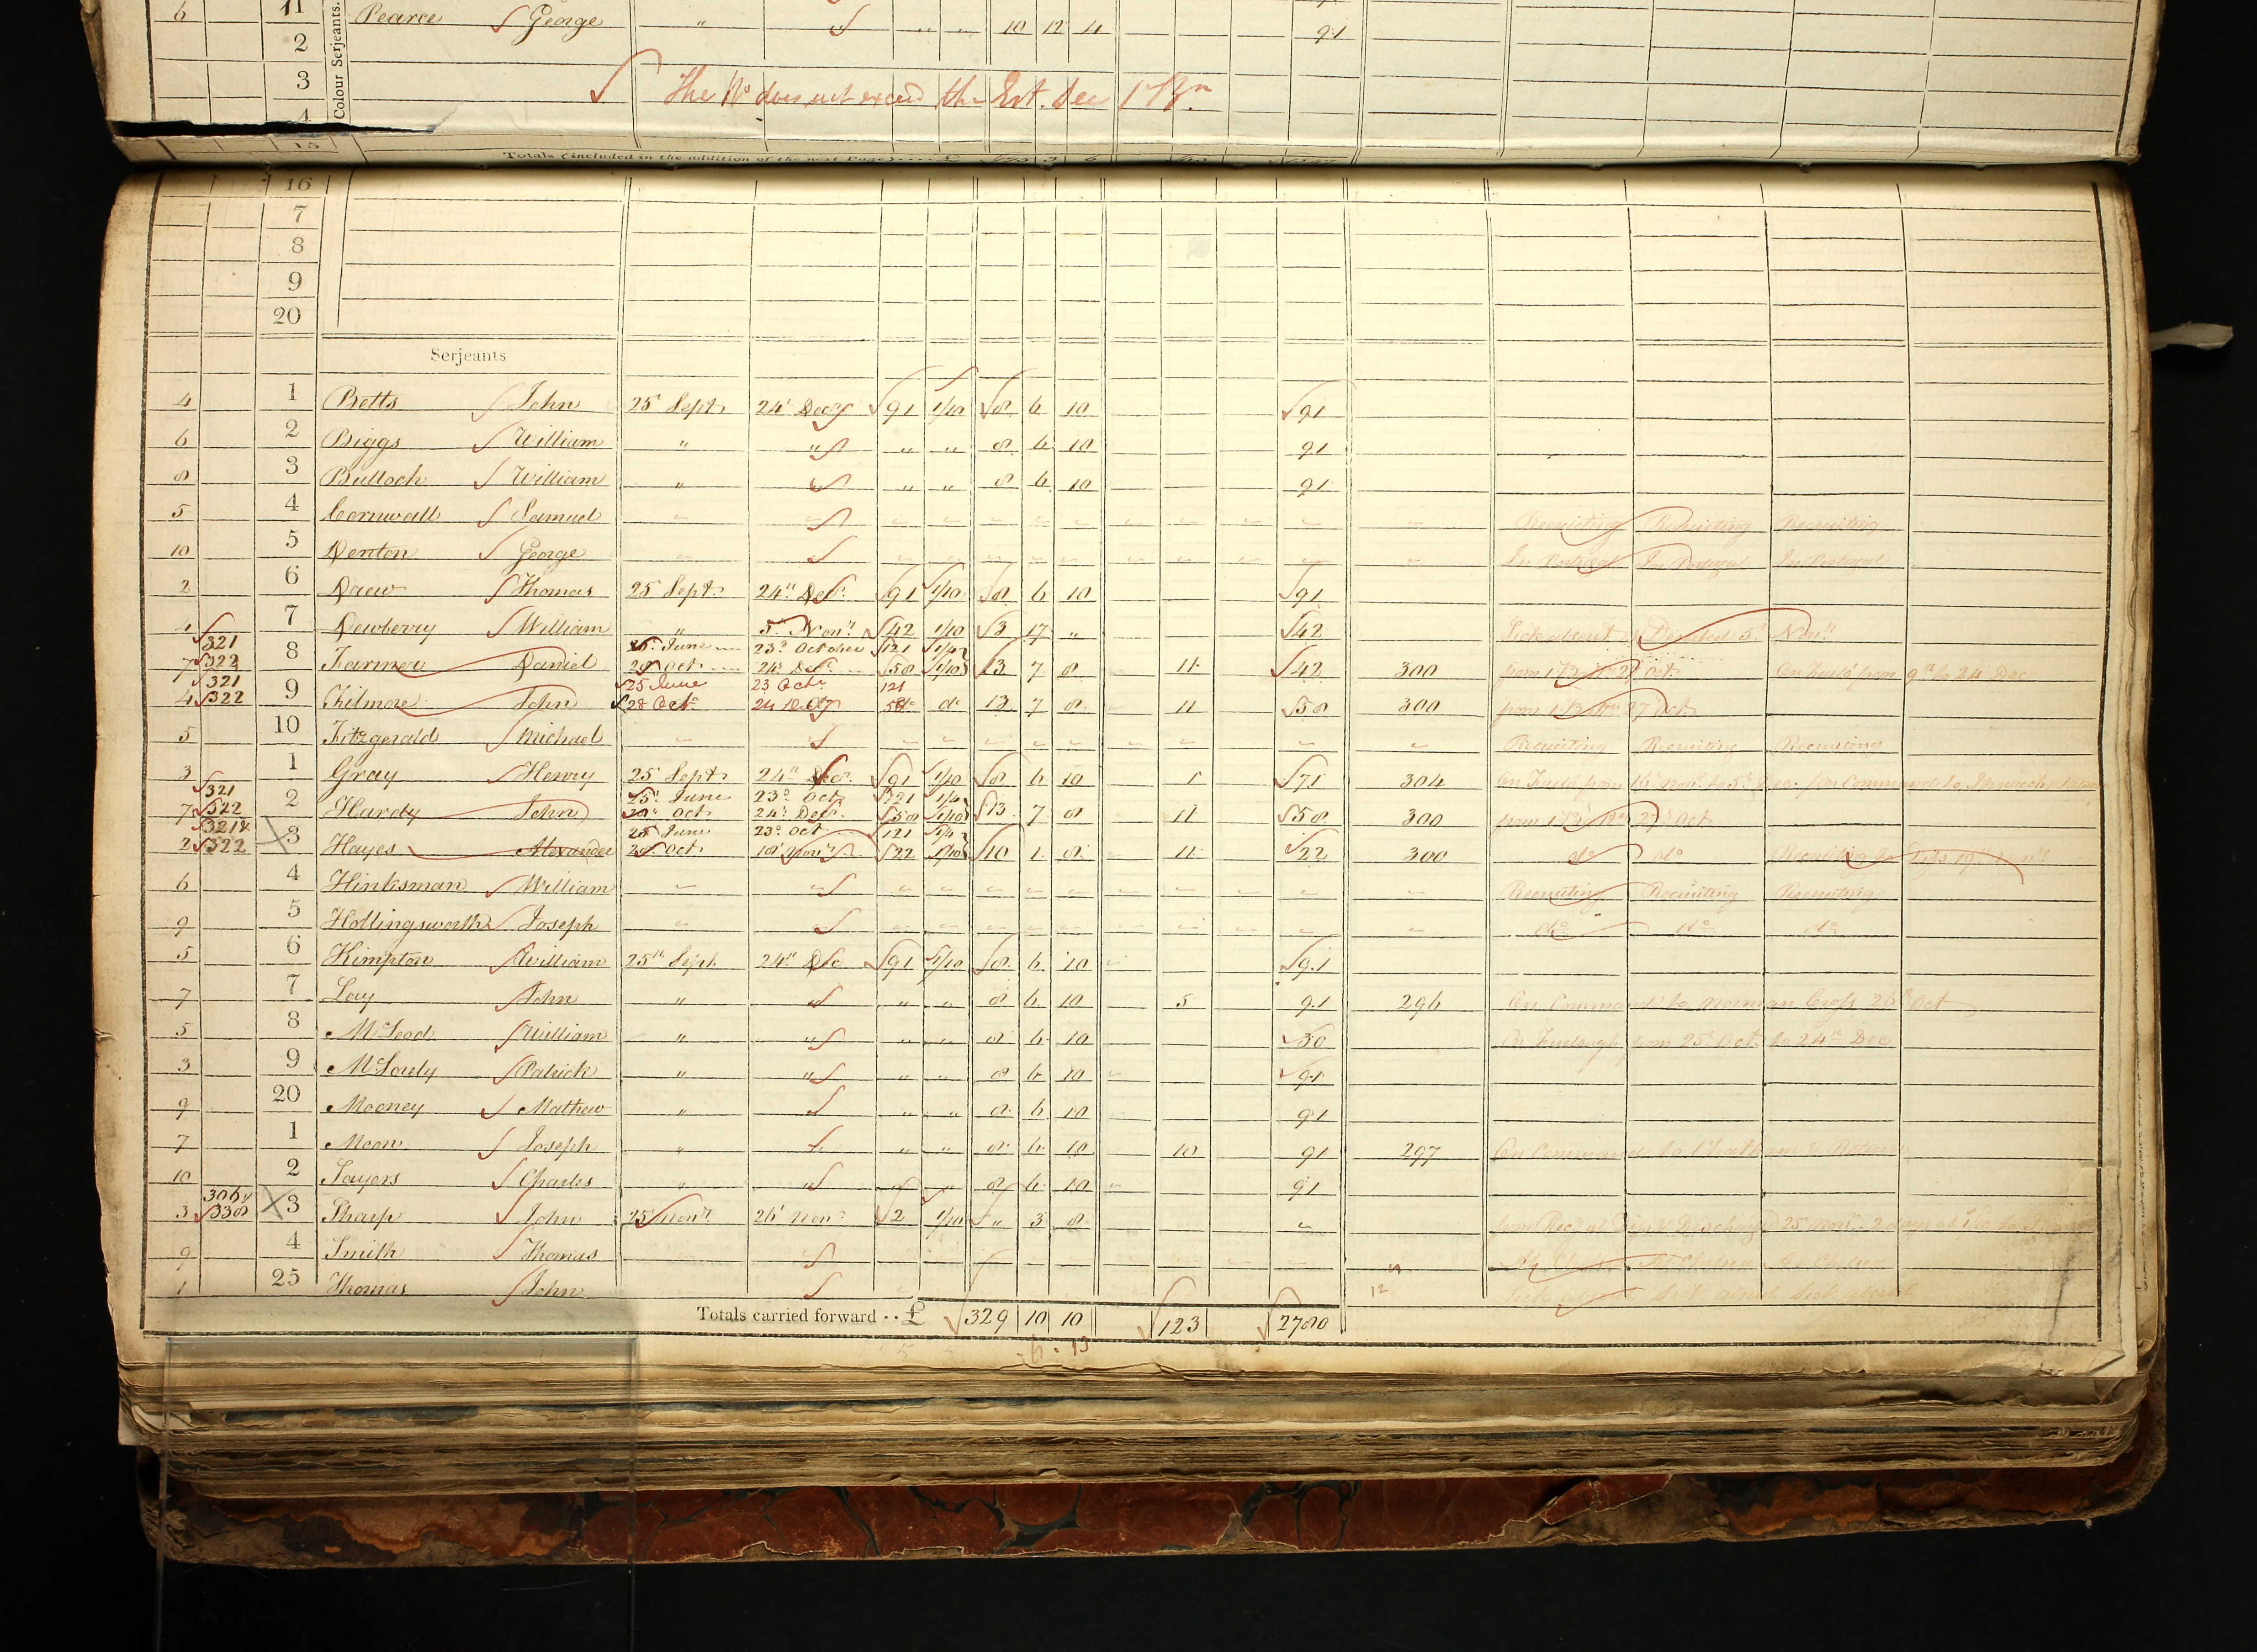 6 11 Pearce George " " " 10 12 4 91
2
Colour Serjeants.
3 The No does not exceed the Est.
4
15
Totals (included in the addition of the next Page) .... £
16
7
8
9
20
Serjeants
4 1 Betts John 25 Sept. 24 Decr 91 1/10 8 6 10 91
6 2 Biggs William " " " " 8 6 10 91
8 3 Bulloch William " " " " 8 6 10 91
5 4 Cornwall Samuel Recruiting Recruiting Recruiting
10 5 Denton George In Portugal In Portugal In Portugal
2 6 Drew Thomas 25 Sept. 24th Decr. 91 1/10 8 6 10 91
1 7 Dewberry William " 5 Novr 42 1/10 3 17 " 42 Sick absent Deserted 5 Novr
321 25 June 23d October 121 1/10
7 322 8 Farmer Daniel 28 Oct. 24 Decr 58 1/10 13 7 8 11 42 300 from 27 Oct. On Furlo' from 9th to 24 Dec
321 25 June 23 Octr 121
4 322 9 Filmore John 28 Octr 24 Decr 58 do 13 7 8 11 58 300 from 27 Oct
5 10 Fitzgerald Michael Recruiting Recruiting Recruiting
3 1 Gray Henry 25 Sept. 24th Decr. 91 1/10 8 6 10 1 71 304 On Furlo' from 16 Novr to 5th Dec. On Command to
321 25 June 23d Oct 121 1/10
7 322 2 Hardy John 28 Oct. 24 Decr. 58 1/10 13 7 8 11 58 300 from 27 Oct
321 25 June 23d Oct 121 1/10
2 322 3 Hayes Alexander 28 Oct. 18 Novr 22 1/10 10 1 8 11 22 300 do do
6 4 Hinksman William Recruiting Recruiting Recruiting
9 5 Hollingsworth Joseph do do do
5 6 Kimpton William 25th Sept. 24th Dec 91 1/10 8 6 10 91
7 7 Lay John " " " " 8 6 10 5 91 296 On Command to Norman Cross 26th Oct
5 8 McLeod William " " " " 8 6 10 30 On Furlough from 25 Oct. to 24th Dec
3 9 McLoudy Patrick " " " " 8 6 10 91
9 20 Mooney Mathew " " " 8 6 10 91
7 1 Moon Joseph " " " 8 6 10 10 91 297 On Command to Chatham &
10 2 Sayers Charles " " " " 8 6 10 91
306
3 338 3 Sharp John 25 Novr 26 Novr 2 1/10 " 3 8 from Rec. at Discharged 25 Novr 2 days at 1/10
9 4 Smith Thomas At Chelsea At Chelsea
1 25 Thomas John 12 Sick absent Sick absent Sick absent
Totals carried forward .. £ 329 10 10 123 2780
6 . 13